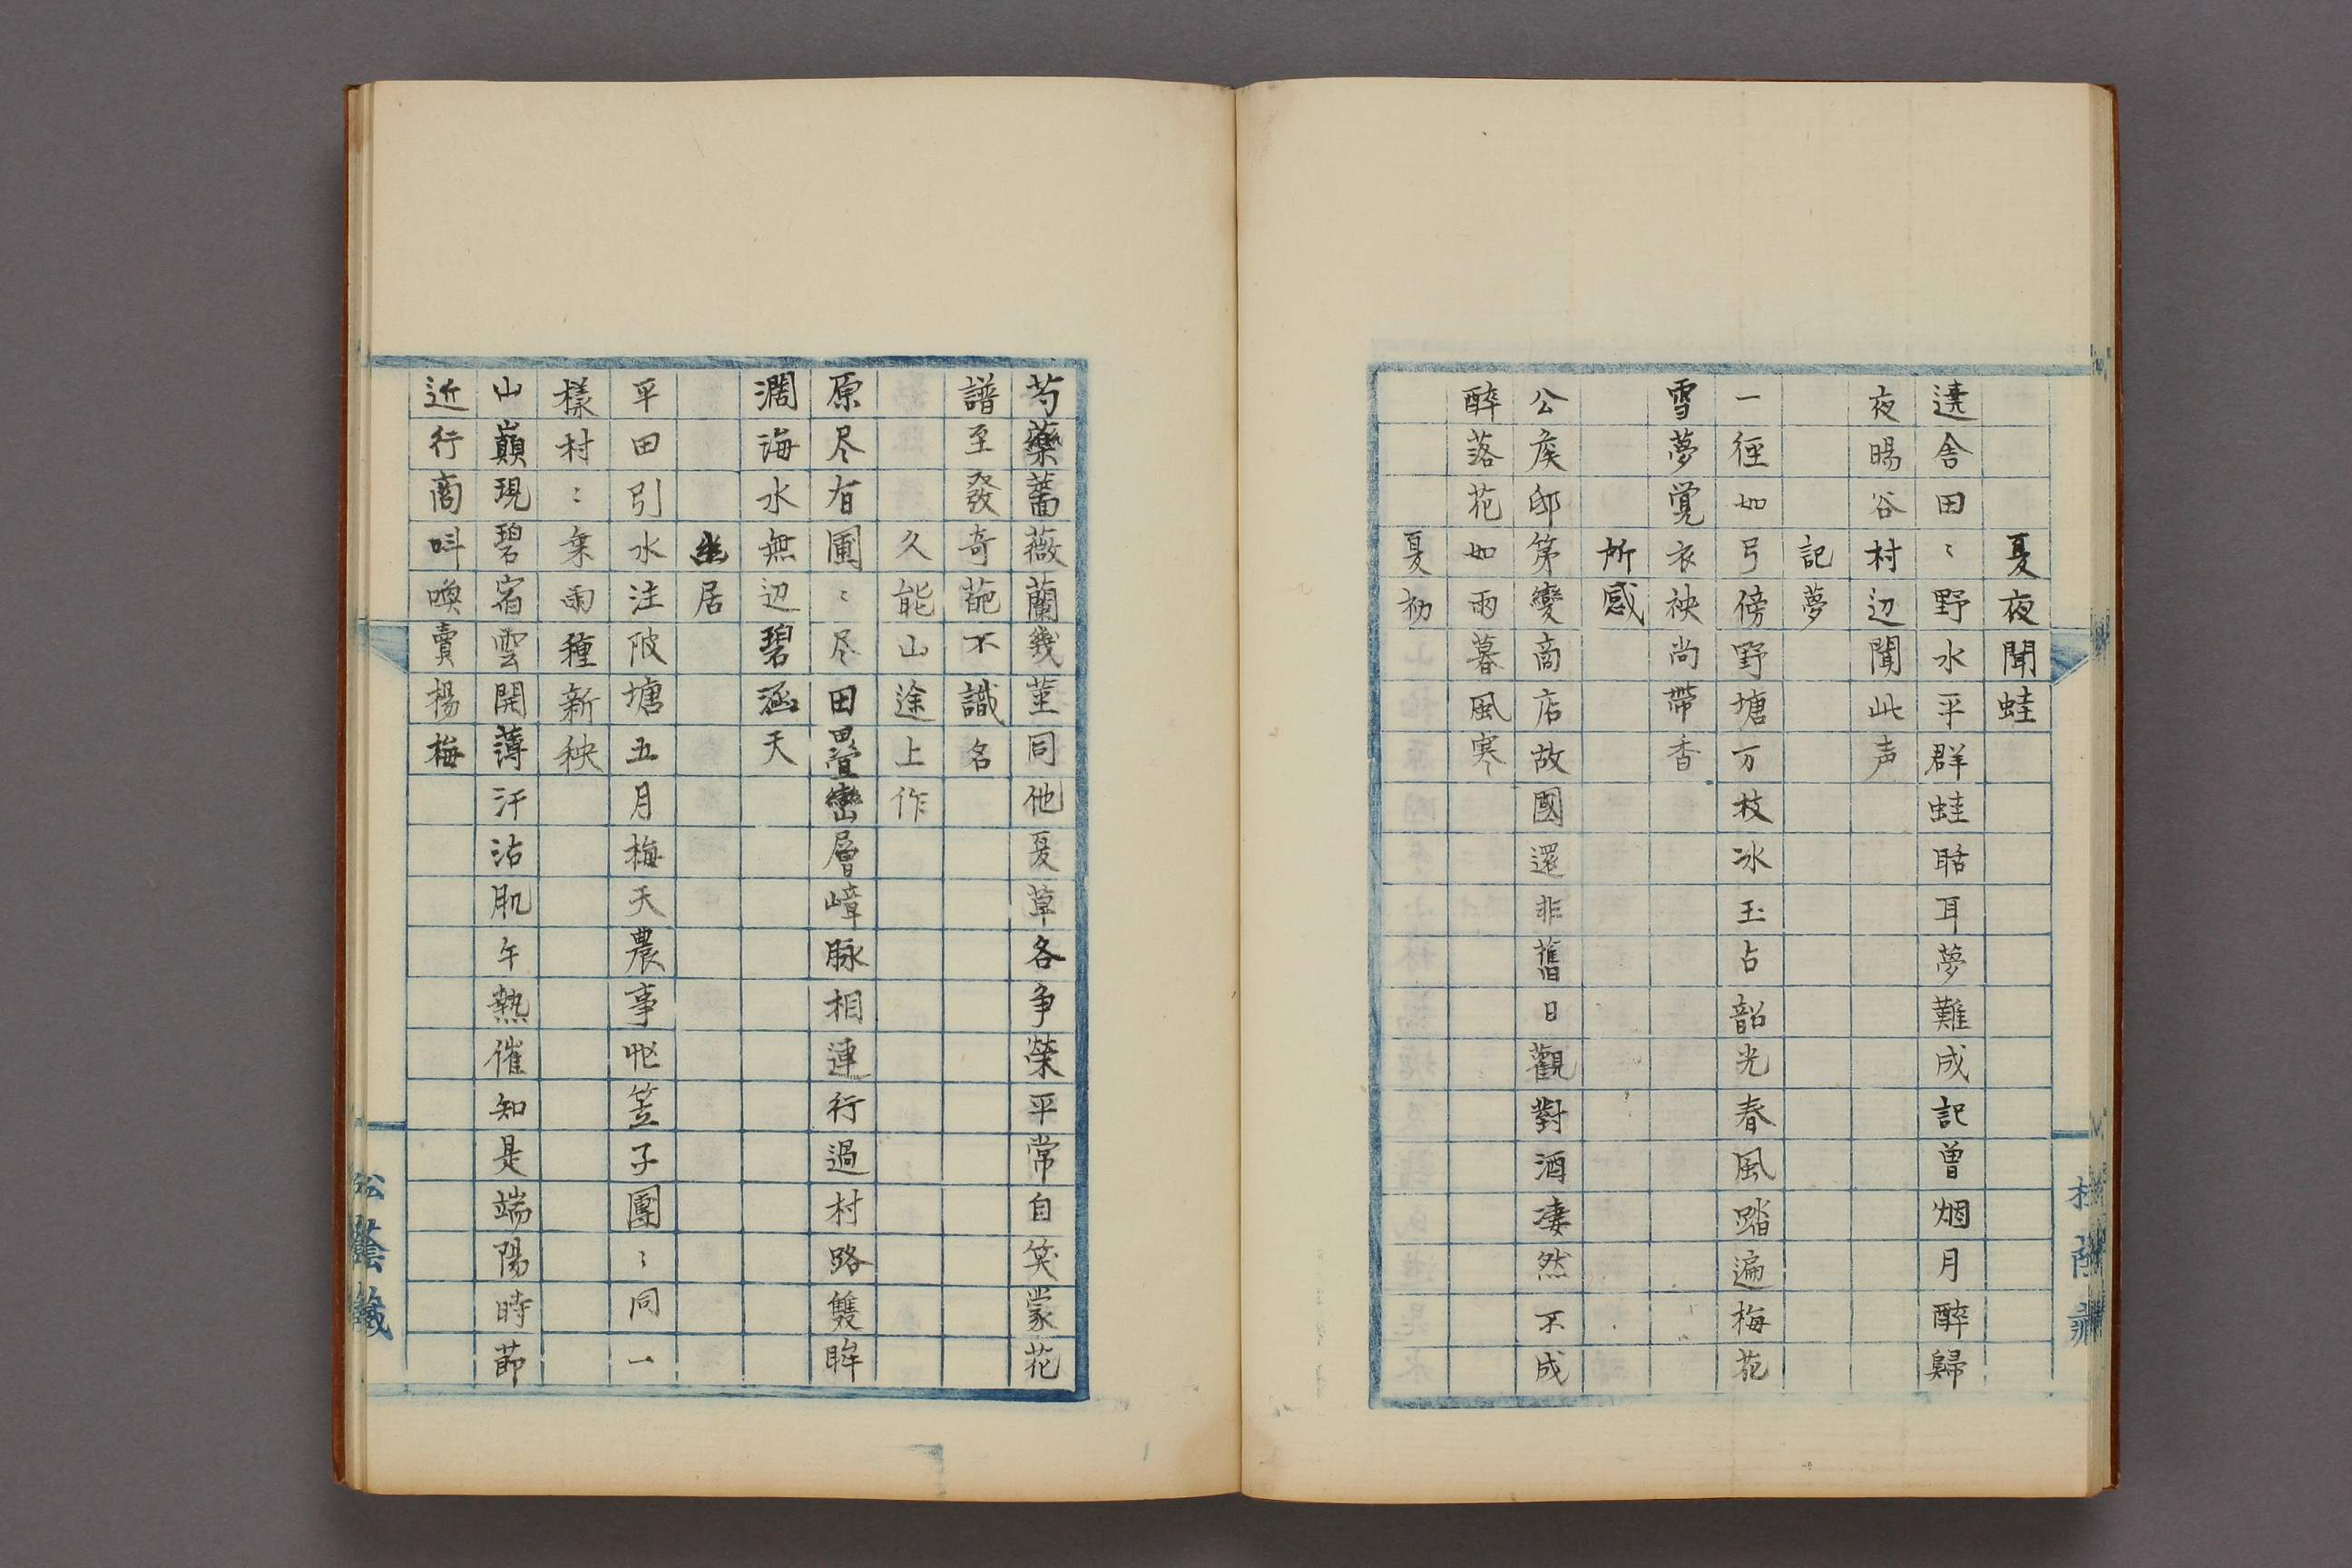 夏夜聞蛙
遶舎田〻野水平群蛙聒耳夢難成記曽烟月醉歸
夜暘谷村辺聞此声
記夢
一徑如弓傍野塘万枝冰玉占韶光春風踏遍梅花
雪夢覚衣袂尚帶香
所感
公矦邸第變商店故國還非舊日觀對酒凄然不成
醉落花如雨暮風寒
夏初
芍藥薔薇蘭幾茎同他夏草各争榮平常自笑蒙花
譜至發奇葩不識名
久能山途上作
原尽有圃〻尽田疊巒層嶂脉相連行過村路雙眸
濶海水無辺碧涵天
幽居
平田引水注陂塘五月梅天農事忙笠子團〻同一
様村〻乗雨種新秧
山巔現碧宿雲開薄汗沾肌午熱催知是端陽時節
近行商呌喚賣楊梅
松陰藏